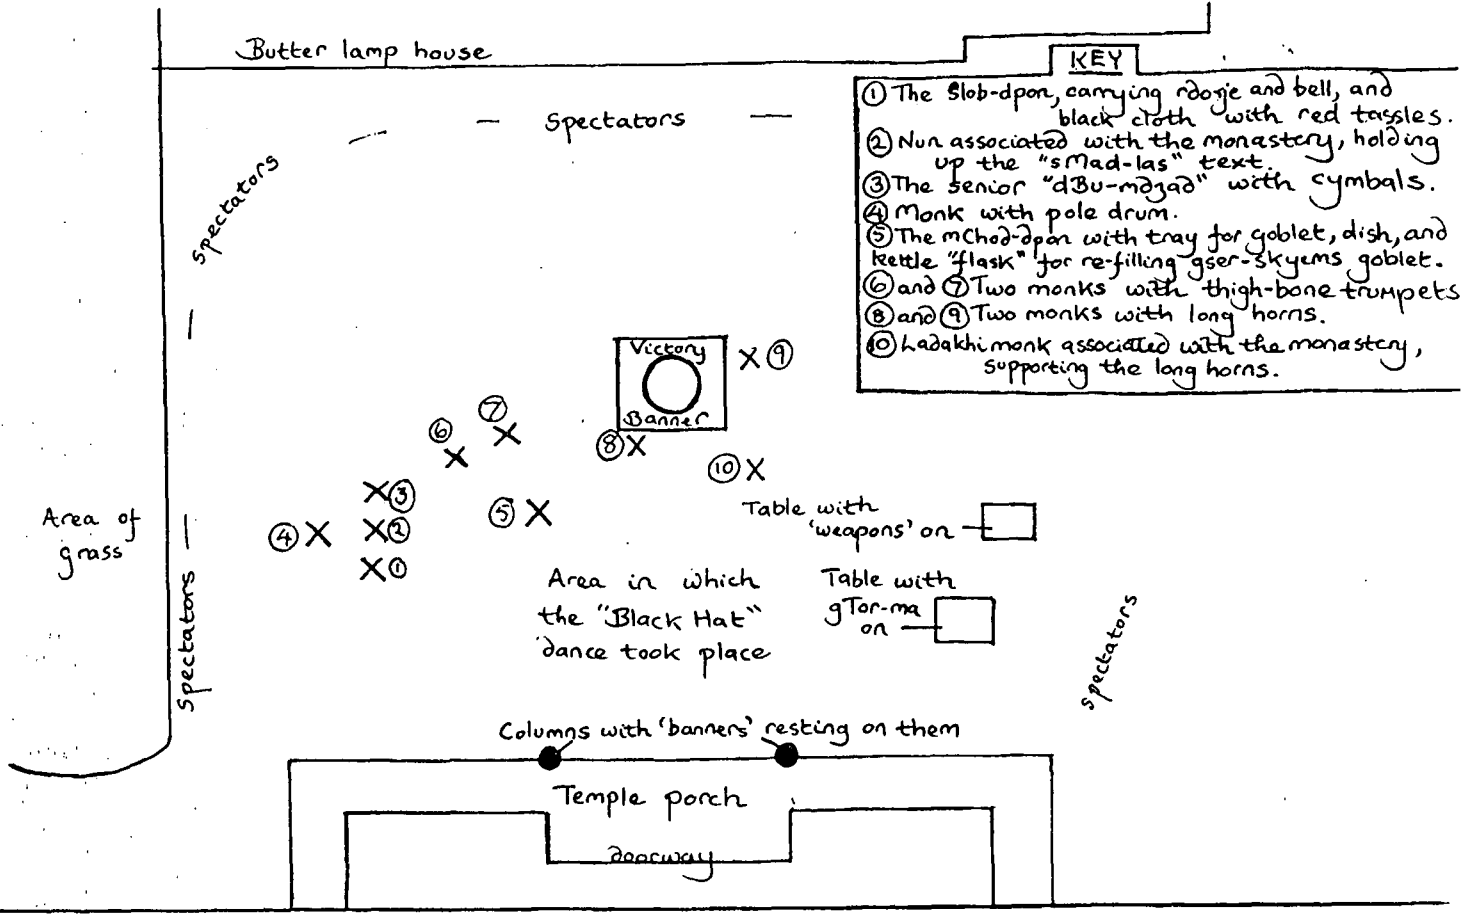 Butter lamp house
KEY
① The Slob-dpon, carrying rdorje and bell, and
black cloth with red tassles.
② Nun associated with the monastery, holding
up the "sMad-las" text.
③ The senior "dBu-mdzad" with cymbals.
④ Monk with pole drum.
⑤ The mChod-dpon with tray for goblet, dish, and
kettle "flask" for re-filling gser-skyems goblet.
⑥ and ⑦ Two monks with thigh-bone trumpets
⑧ and ⑨ Two monks with long horns.
⑩ Ladakhi monk associated with the monastery,
supporting the long horns.
Spectators
Spectators
Victory
Banner
X ⑨
⑦
X
⑥
X
⑧ X
⑩ X
X ③
④ X
X ②
X ①
⑤ X
Area of
grass
Table with
'weapons' on
Area in which
the "Black Hat"
dance took place
Table with
gTor-ma
on
Spectators
Spectators
Columns with 'banners' resting on them
Temple porch
doorway